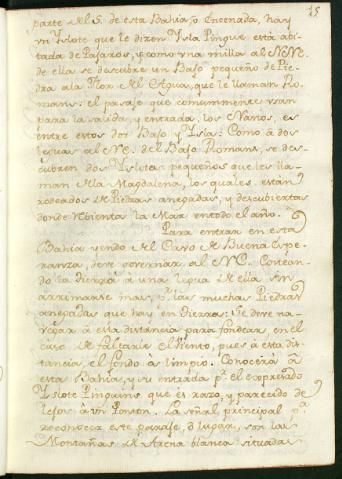 15
parte del S. de esta Bahia, ò Encenada, hay
vn Yslote que le dizen Ysla Pingue, está abi
tada de Pajaros, y como vna milla al NNE.
de ella se descubre vn Bajo pequeño de Pie
dra ala Flor del Agua, que le llaman Ro-
mans: el pasaje que comunmente vsan
para la salida, y entrada, los Navios, es
entre estos dos Bajo, y Ysla: Como à dos
leguas al NE. del Bajo Romans, se des
cubren dos Yslotes pequeños que les lla-
man dela Magdalena, los quales estan
rodeados de Piedras anegadas, y descubiertas
donde rebienta la Mar en todo el año.
Para entrar en esta
Bahia yendo del Cavo de Buena Espe-
ranza, deve governar al NE. Costean-
do la Tierra à una legua de ella, sin
arrimarse mas, pr. las muchas Piedras
anegadas que hay en Tierra: Se deve na-
vegar à esta distancia para fondear, en el
caso de faltarle el Viento, pues à esta dis-
tancia, el fondo es limpio. Conocerá à
esta Bahia, y su entrada pr. el expresado
Yslote Pinguins que es razo, y parecido de
lejos à vn Ponton. La señal principal pa.
reconocer este paraje, ò lugar, son las
Montañas de Arena blanca situadas